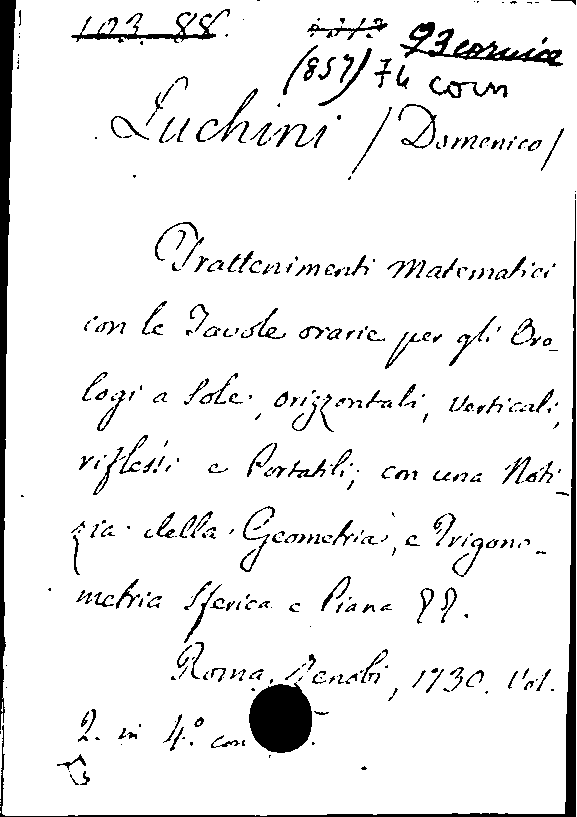 103. 88.
93 cornice
(857) 74 corn
Luchini /Domenico/
Trattenimenti Matematici
con le Tavole orarie per gli Oro-
logi a Sole, orizzontali, verticali,
riflessi e Portatili; con una Noti-
zia della Geometria, e Trigono-
metria Sferica e Piana
Roma, Zenobi, 1730. Vol.
2. in 4.º con